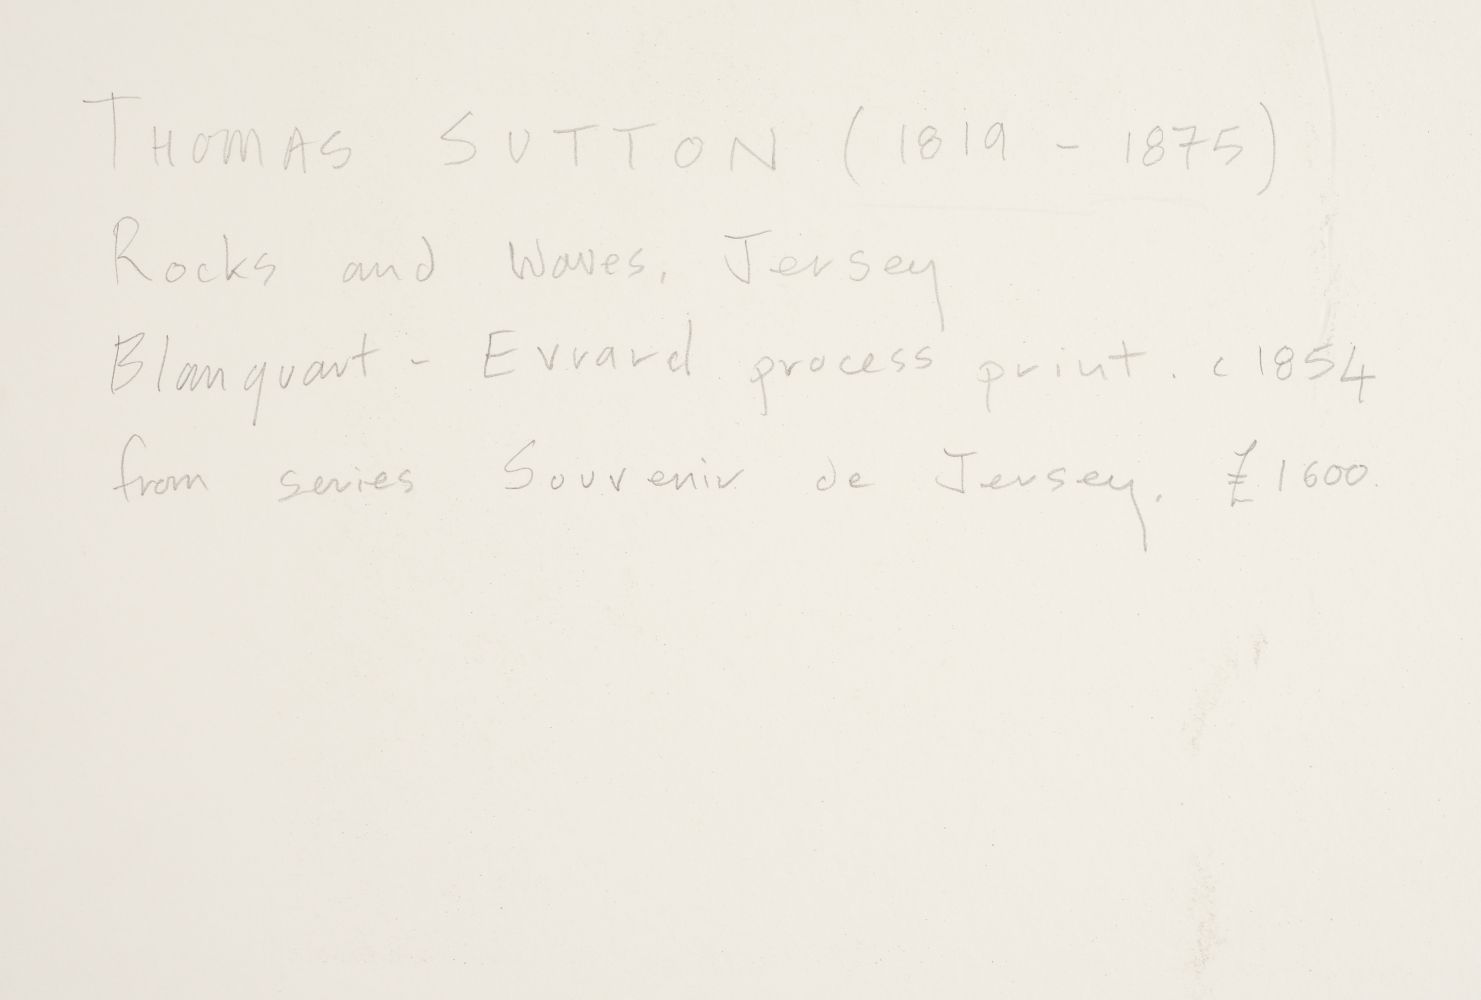 THOMAS SUTTON (1819 - 1875)
Rocks and Waves, Jersey
Blanquart - Evrard process print. c 1854
from series Souvenir de Jersey. £1600.